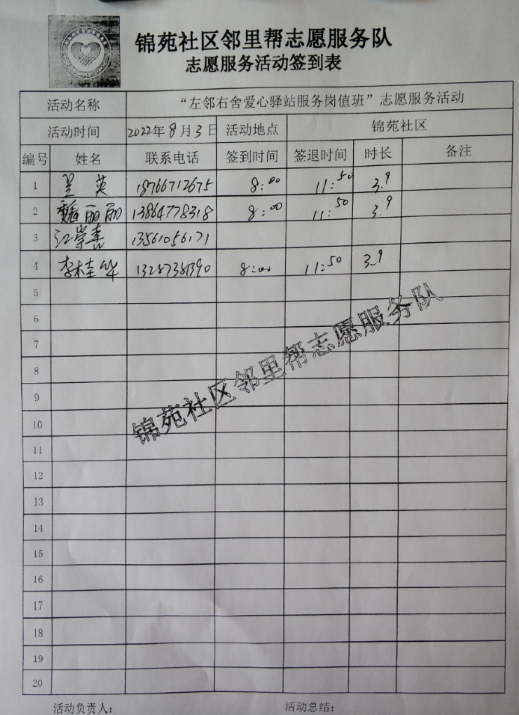 锦苑社区邻里帮志愿服务队
志愿服务活动签到表
活动名称 “左邻右舍爱心驿站服务岗值班”志愿服务活动
活动时间 2022年8月3日 活动地点 锦苑社区
编号 姓名 联系电话 签到时间 签退时间 时长 备注
1 英 18766712675 8:00 11:50 3.9
2 魏丽丽 13864778318 8:00 11:50 3.9
3 江崇喜 13561056171
4 李桂华 13287381390 8:00 11:50 3.9
5
6
7
8
9
10
锦苑社区邻里帮志愿服务队
11
12
13
14
15
16
17
18
19
20
活动负责人: 活动总结: